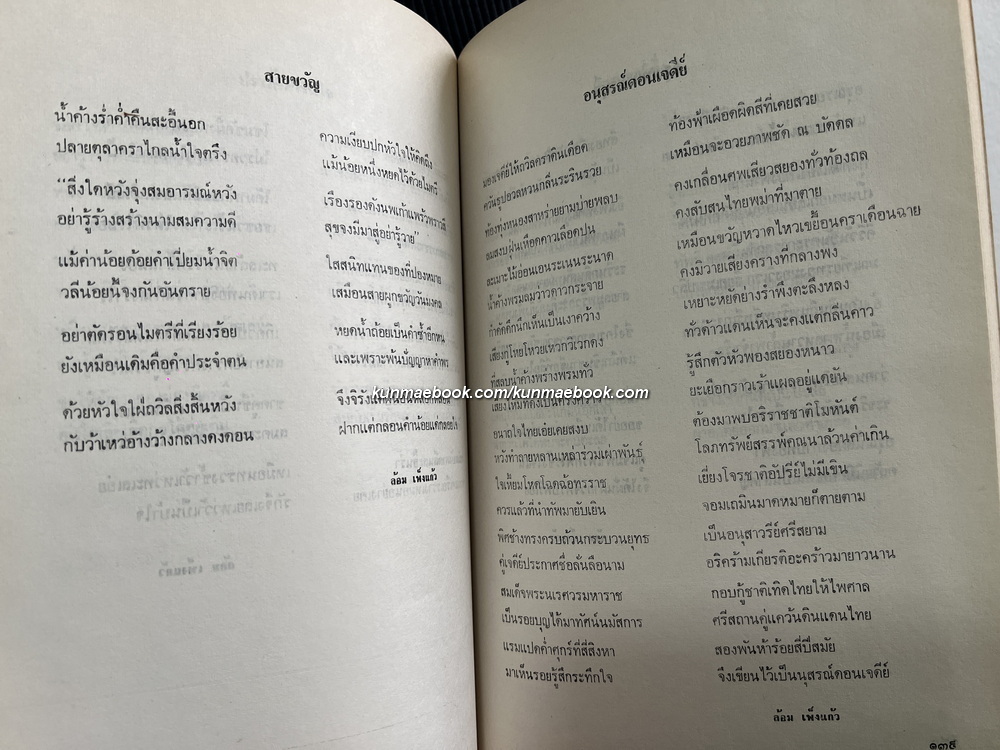 สายขวัญ
น้ำค้างร่ำค่ำคืนสะอื้นอก
ความเงียบปกหัวใจให้คิดถึง
ปลายตุลาคราไกลน้ำใจตรึง
แม้น้อยหนึ่งหยดไว้ด้วยไมตรี
“สิ่งใดหวังจุ่งสมอารมณ์หวัง
เรืองรองดังนพเก้าแพร้วพราวสี
อย่ารู้ร้างสร้างนามสมความดี
สุขจงมีมาสู่อย่ารู้วาย”
แม้ค่าน้อยด้อยคำเปี่ยมน้ำจิต
ใสสนิทแทนของที่ปองหมาย
วลีน้อยนี้จงกันอันตราย
เสมือนสายผูกขวัญวันมงคล
อย่าตัดรอนไมตรีที่เรียงร้อย
หยดน้ำถ้อยเป็นคำซ้ำอีกหน
ยังเหมือนเดิมคือคำประจำตน
และเพราะพ้นปัญญาหาคำพร
ด้วยหัวใจใฝ่ถวิลสิ่งสิ้นหวัง
จึงจริงจัง
กับว้าเหว่อ้างว้างกลางดงดอน
ฝากแต่กลอนคำน้อยแด่กลอยใจ
ล้อม เพ็งแก้ว
อนุสรณ์ดอนเจดีย์
มองเจดีย์ให้ถวิลคราดินเดือด
ท้องฟ้าเผือดผิดสีที่เคยสวย
ควันธูปอวลหวนกลิ่นระรินรวย
เหมือนจะอวยภาพชัด ณ บัดดล
ท้องทุ่งหนองสาหร่ายยามบ่ายพลบ
คงเกลื่อนศพเสียวสยองทั่วท้องถล
ลมสงบฝุ่นเหือดคาวเลือดปน
คงสับสนไทยพม่าที่มาตาย
ละเมาะไม้อ่อนเอนระเนนระนาด
เหมือนขวัญหวาดไหวเขยื้อนคราเดือนฉาย
น้ำค้างพรมลมว่าวดาวกระจาย
คงมิวายเสียงครางที่กลางพง
กำดัดดึกนึกเห็นเป็นเงาคว้าง
เหยาะหยัดย่างรำพึงตะลึงหลง
เสียงกู่โหยโหวยเหวกวิเวกดง
ทั่วด้าวแดนเห็นจะคงแต่กลิ่นคาว
ที่สงบน้ำค้างพรางพรมทั่ว
รู้สึกตัวหัวพองสยองหนาว
ยะเยือกราวเร้าแผลอยู่แดยัน
อนาถใจไทยเอ๋ยเคยสงบ
ต้องมาพบอริราชชาติโมหันต์
หวังทำลายหลานเหล่าร่วมเผ่าพันธุ์
โลภทรัพย์สรรพ์คณนาล้วนค่าเกิน
ใจเหี้ยมโหดโฉดฉ้อทรราช
เยี่ยงโจรชาติอัปรีย์ไม่มีเขิน
ควรแล้วที่นำทัพมายับเยิน
จอมเถมินมาดหมายก็ตายตาม
พิศช้างทรงครบถ้วนกระบวนยุทธ
เป็นอนุสาวรีย์ศรีสยาม
คู่เจดีย์ประกาศชื่อลั่นลือนาม
อริคร้ามเกียรติอะคร้าวมายาวนาน
สมเด็จพระนเรศวรมหาราช
กอบกู้ชาติเทิดไทยให้ไพศาล
เป็นรอยบุญได้มาทัศน์นมัสการ
ศรีสถานคู่แคว้นดินแดนไทย
แรมแปดค่ำศุกร์ที่สี่สิงหา
สองพันห้าร้อยสี่ปีสมัย
มาเห็นรอยรู้สึกระทึกใจ
จึงเขียนไว้เป็นนุสรณ์ดอนเจดีย์
ล้อม เพ็งแก้ว
๑๓๕
kunmaebook.com/kunmaebook.com